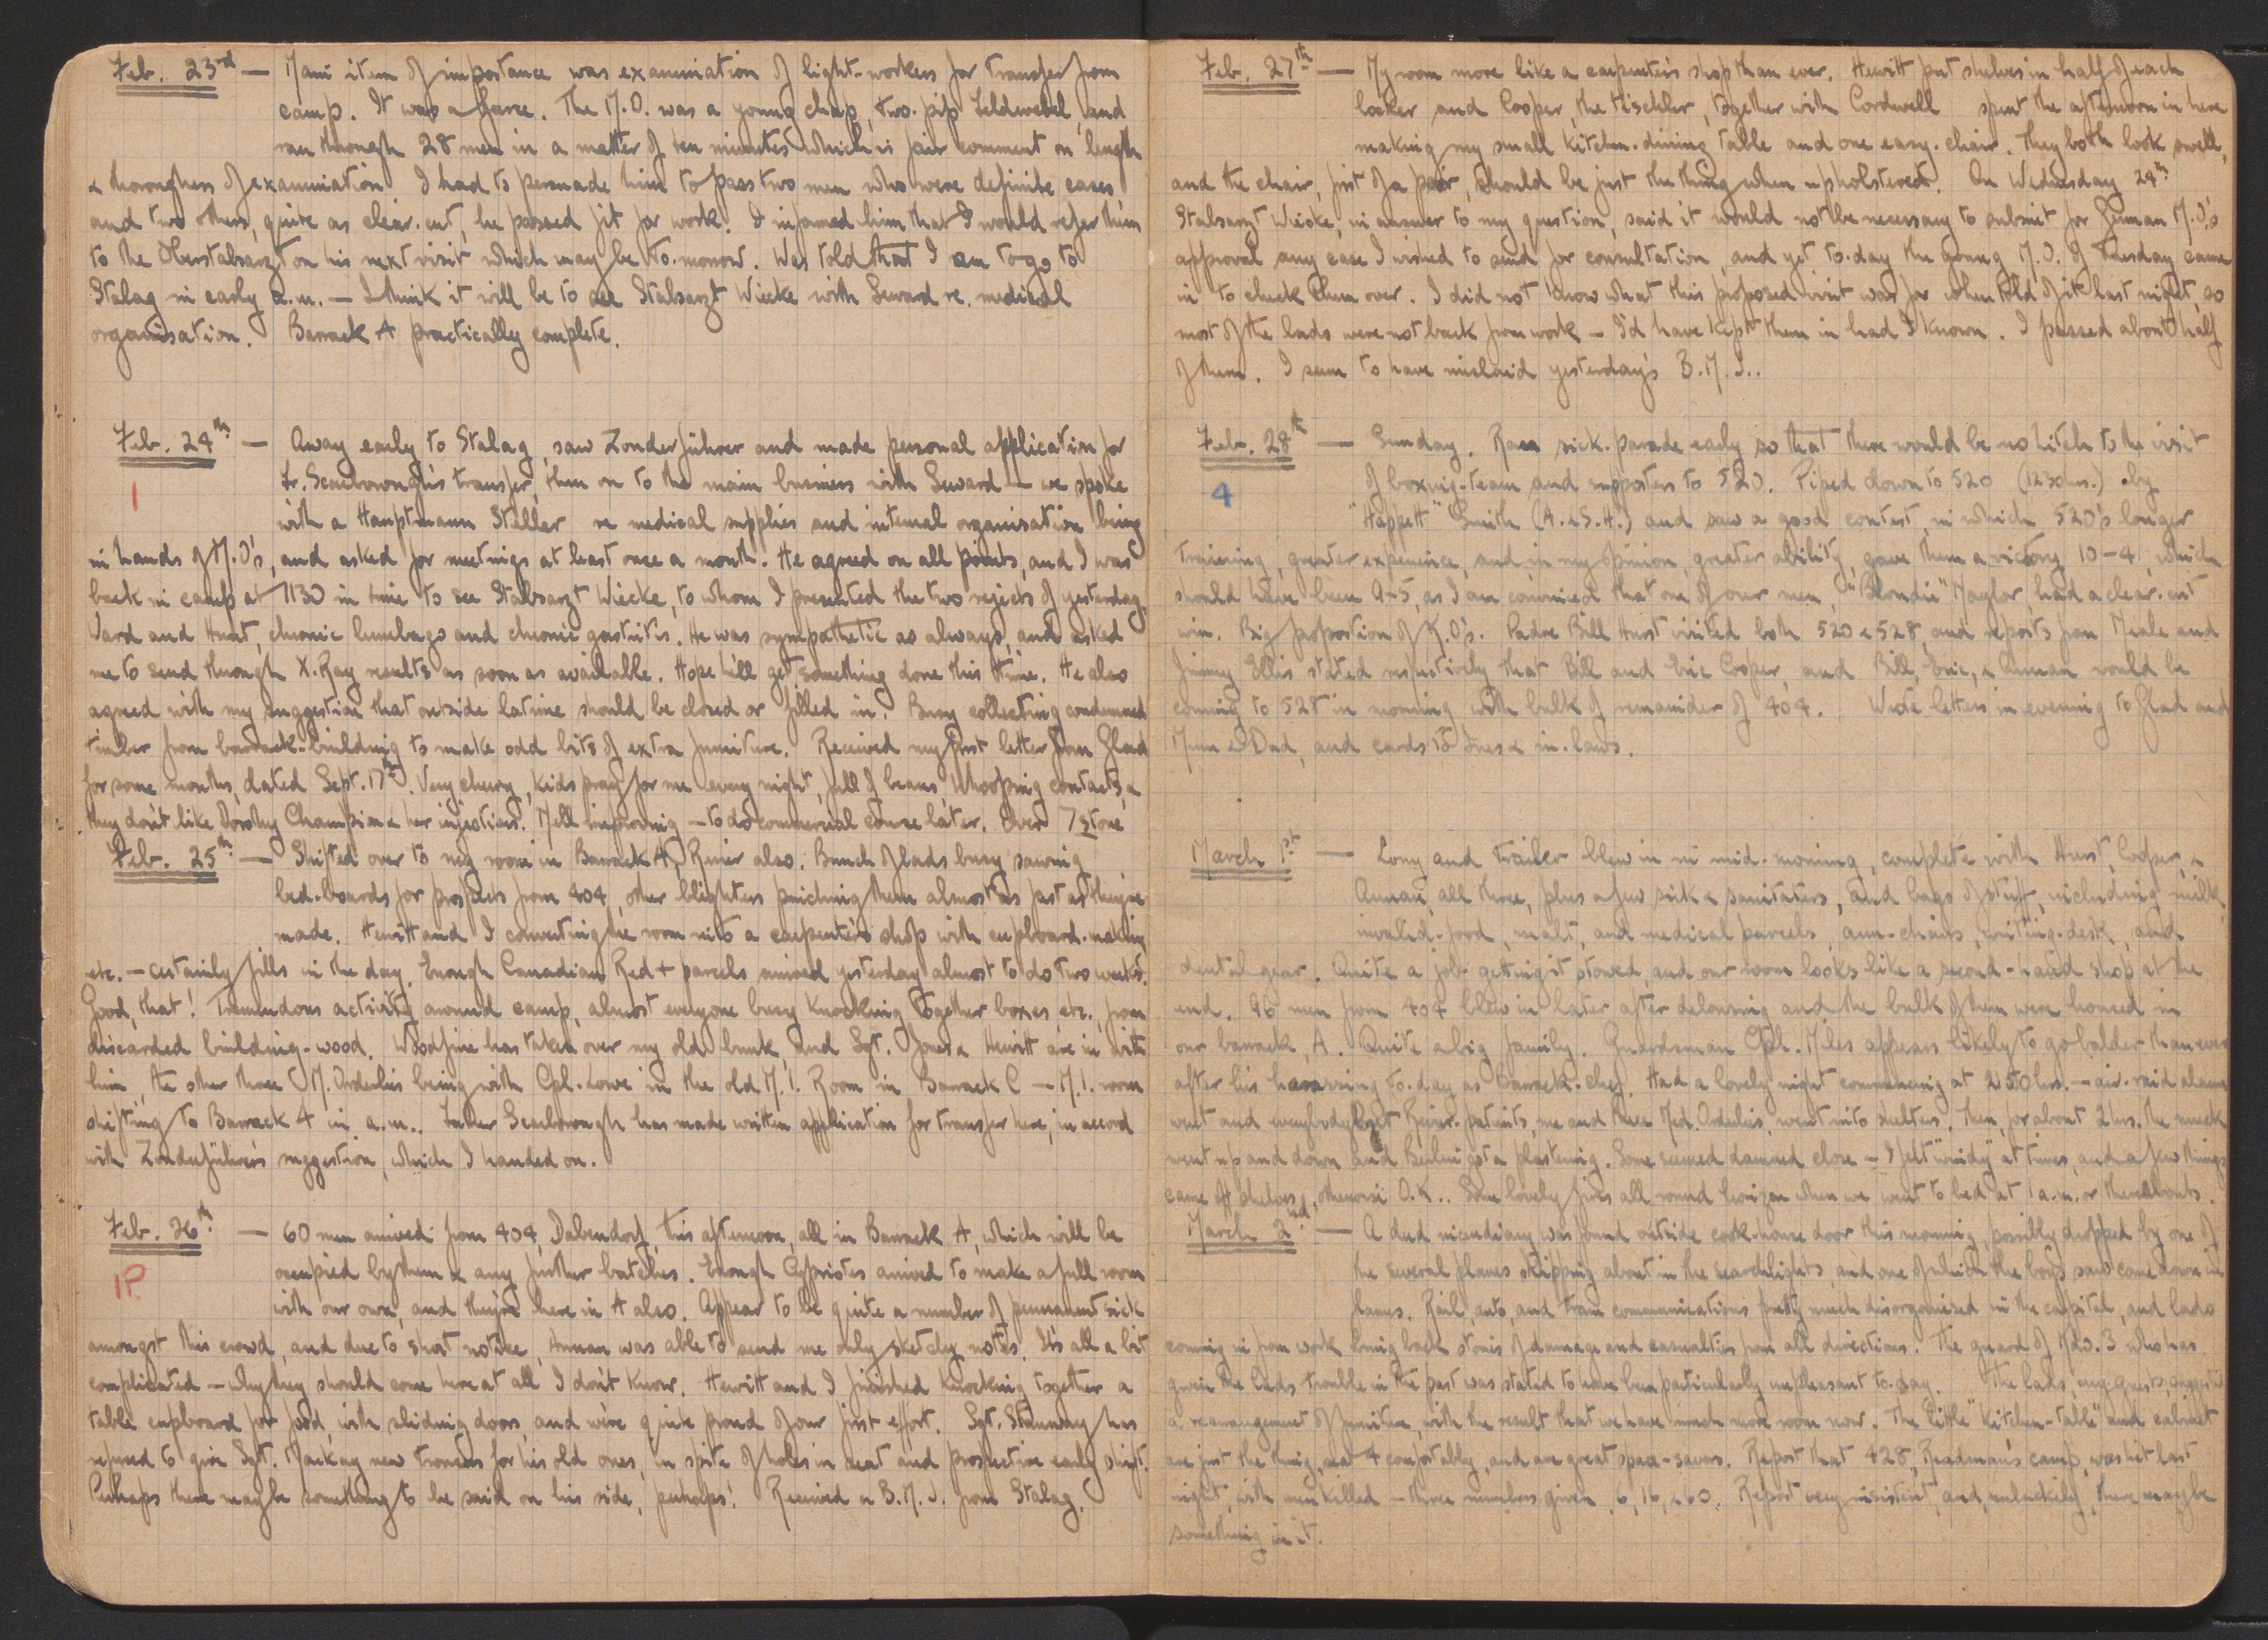 Feb. 23rd — Main item of importance was examination of light-workers for transfer from
camp. It was a farce. The M.O. was a young chap, two-pip Feldwebel, and
ran through 28 men in a matter of ten minutes which is fair comment on length
& thoroughness of examination. I had to persuade him to pass two men who were definite cases
and two others, quite as clear-cut, he passed fit for work! I informed him that I would refer them
to the Oberstabsarzt on his next visit which may be to-morrow. Was told that I am to go to
Stalag in early a.m. — I think it will be to see Stabsarzt Wiecke with Seward re. medical
organisation. Barrack A practically complete.
Feb. 24th — Away early to Stalag, saw Zonderführer and made personal application for
1
F. Scarborough's transfer, then on to the main business with Seward — we spoke
with a Hauptmann Staller re medical supplies and internal organisation being
in hands of M.O's, and asked for meetings at least once a month. He agreed on all points, and I was
back in camp at 1130 in time to see Stabsarzt Wiecke, to whom I presented the two rejects of yesterday,
Ward and Hunt, chronic lumbago and chronic gastritis. He was sympathetic as always, and asked
me to send through X-Ray results as soon as available. Hope he'll get something done this time. He also
agreed with my suggestion that outside latrine should be closed or filled in. Busy collecting condemned
timber from barrack-building to make odd bits of extra furniture. Received my first letter from Glad
for some months, dated Sept. 17th. Very cheery, kids pray for me every night, full of beans Whooping contacts, &
they don't like Dorothy Champion & her injections. Mell improving — to do commercial course later. Over 7 stone
Feb. 25th — Shifted over to my room in Barrack A, Revier also. Bunch of lads busy sawing
bed-boards for prospects from 404, other blighters pinching them almost as fast as they're
made. Hewitt and I converting the room into a carpenter's shop with cupboard-making
etc. — certainly fills in the day. Enough Canadian Red + parcels arrived yesterday almost to do two weeks.
Good, that! Tremendous activity around camp, almost everyone busy knocking together boxes etc., from
discarded building-wood. Woodfine has taken over my old bunk, and Sgt. Jones & Hewitt are in with
him, the other three M. Orderlies being with Cpl. Lowe in the old M.I. Room in Barrack C — M.I. room
shifting to Barrack 4 in a.m.. Scarborough has made written application for transfer here, in accord
with Zonderführer's suggestion, which I handed on.
Feb. 26th — 60 men arrived from 404, Dabendorf, this afternoon, all in Barrack A, which will be
1P.
occupied by them & any further batches. Enough Cypriotes arrived to make a full room
with our own, and they're here in A also. Appear to be quite a number of permanent sick
amongst this crowd, and due to short notice, Annan was able to send me only sketchy notes. It's all a bit
complicated — why they should come here at all I don't know. Hewitt and I finished knocking together a
table cupboard for food, with sliding doors, and we're quite proud of our first effort. Sgt. Stannway has
refused to give Sgt. Mackay new trousers for his old ones, in spite of holes in seat and prospective early shift.
Perhaps there may be something to be said on his side, perhaps! Received a B.M.J. from Stalag.
Feb. 27th — My room more like a carpenter's shop than ever. Hewitt put shelves in half of each
locker and Cooper, the tischler, together with Cordwell spent the afternoon in here
making my small kitchen-dining table and one easy-chair. They both look swell,
and the chair, first of a pair, should be just the thing when upholstered. On Wednesday 24th
Stabsarzt Wiecke, in answer to my question, said it would not be necessary to submit for German M.O.'s
approval any case I wished to send for consultation, and yet to-day the young M.O. of Tuesday came
in to check them over. I did not know what this proposed visit was for when told of it last night, so
most of the lads were not back from work — I'd have kept them in had I known. I passed about half
of them. I seem to have mislaid yesterday's B.M.J..
Feb. 28th — Sunday. Ran sick-parade early so that there would be no hitch to the visit
4
of boxing-team and supporters to 520. Piped down to 520 (1230 hrs.) by
"Happett" Smith (A.&S.H.) and saw a good contest, in which 520's longer
training, greater experience, and in my opinion, greater ability, gave them a victory 10-4, which
should have been 9-5, as I am convinced that one of our men, "Blondie" Taylor, had a clear-cut
win. Big proportion of K.O's. Padre Bill Hurst visited both 520 & 528, and reports from Meale and
Jimmy Ellis stated respectively that Bill and Eric Cooper, and Bill, Eric, & Annan would be
coming to 528 in morning with bulk of remainder of 404. Wrote letters in evening to Glad and
Mum & Dad, and cards to Ines & in-laws.
March 1st — Lorry and trailer blew in in mid-morning, complete with Hurst, Cooper, &
Annan, all three, plus a few sick & sanitaters, and bags of stuff, including milk,
invalid-food, malt, and medical parcels, arm-chairs, writing-desk, and
dental gear. Quite a job getting it stowed, and our room looks like a second-hand shop at the
end. 96 men from 404 blew in later after delousing and the bulk of them were housed in
our barrack, A. Quite a big family. Guardsman Cpl. Miles appears likely to go balder than ever
after his harassing to-day as Barrack-chef. Had a lovely night commencing at 2150 hrs. — air-raid alarm
went and everybody but Revier-patients, me and three Med. Orderlies, went into shelters. Then, for about 2 hrs. the muck
went up and down and Berlin got a plastering. Some seemed damned close — I felt "windy" at times, and a few things
came off shelves, otherwise O.K.. Some lovely fires all round horizon when we went to bed at 1 a.m. or thereabouts.
March 2nd — A dud incendiary was found outside cook-house door this morning, possibly dropped by one of
the several planes skipping about in the searchlights, and one of which the boys saw come down in
flames. Rail, auto, and tram communications pretty much disorganised in the capital, and lads
coming in from work bring back stories of damage and casualties from all directions. The guard of Kdo. 3 who has
given the lads trouble in the past was stated to have been particularly unpleasant to-day. The lads, my guests, suggested
a rearrangement of furniture, with the result that we have much more room now. The little "kitchen-table" and cabinet
are just the thing, seat 4 comfortably, and are great space-savers. Report that 428, Readman's camp, was hit last
night, with men killed — three numbers given, 6, 16, & 60. Report very insistent, and, unluckily, there may be
something in it.